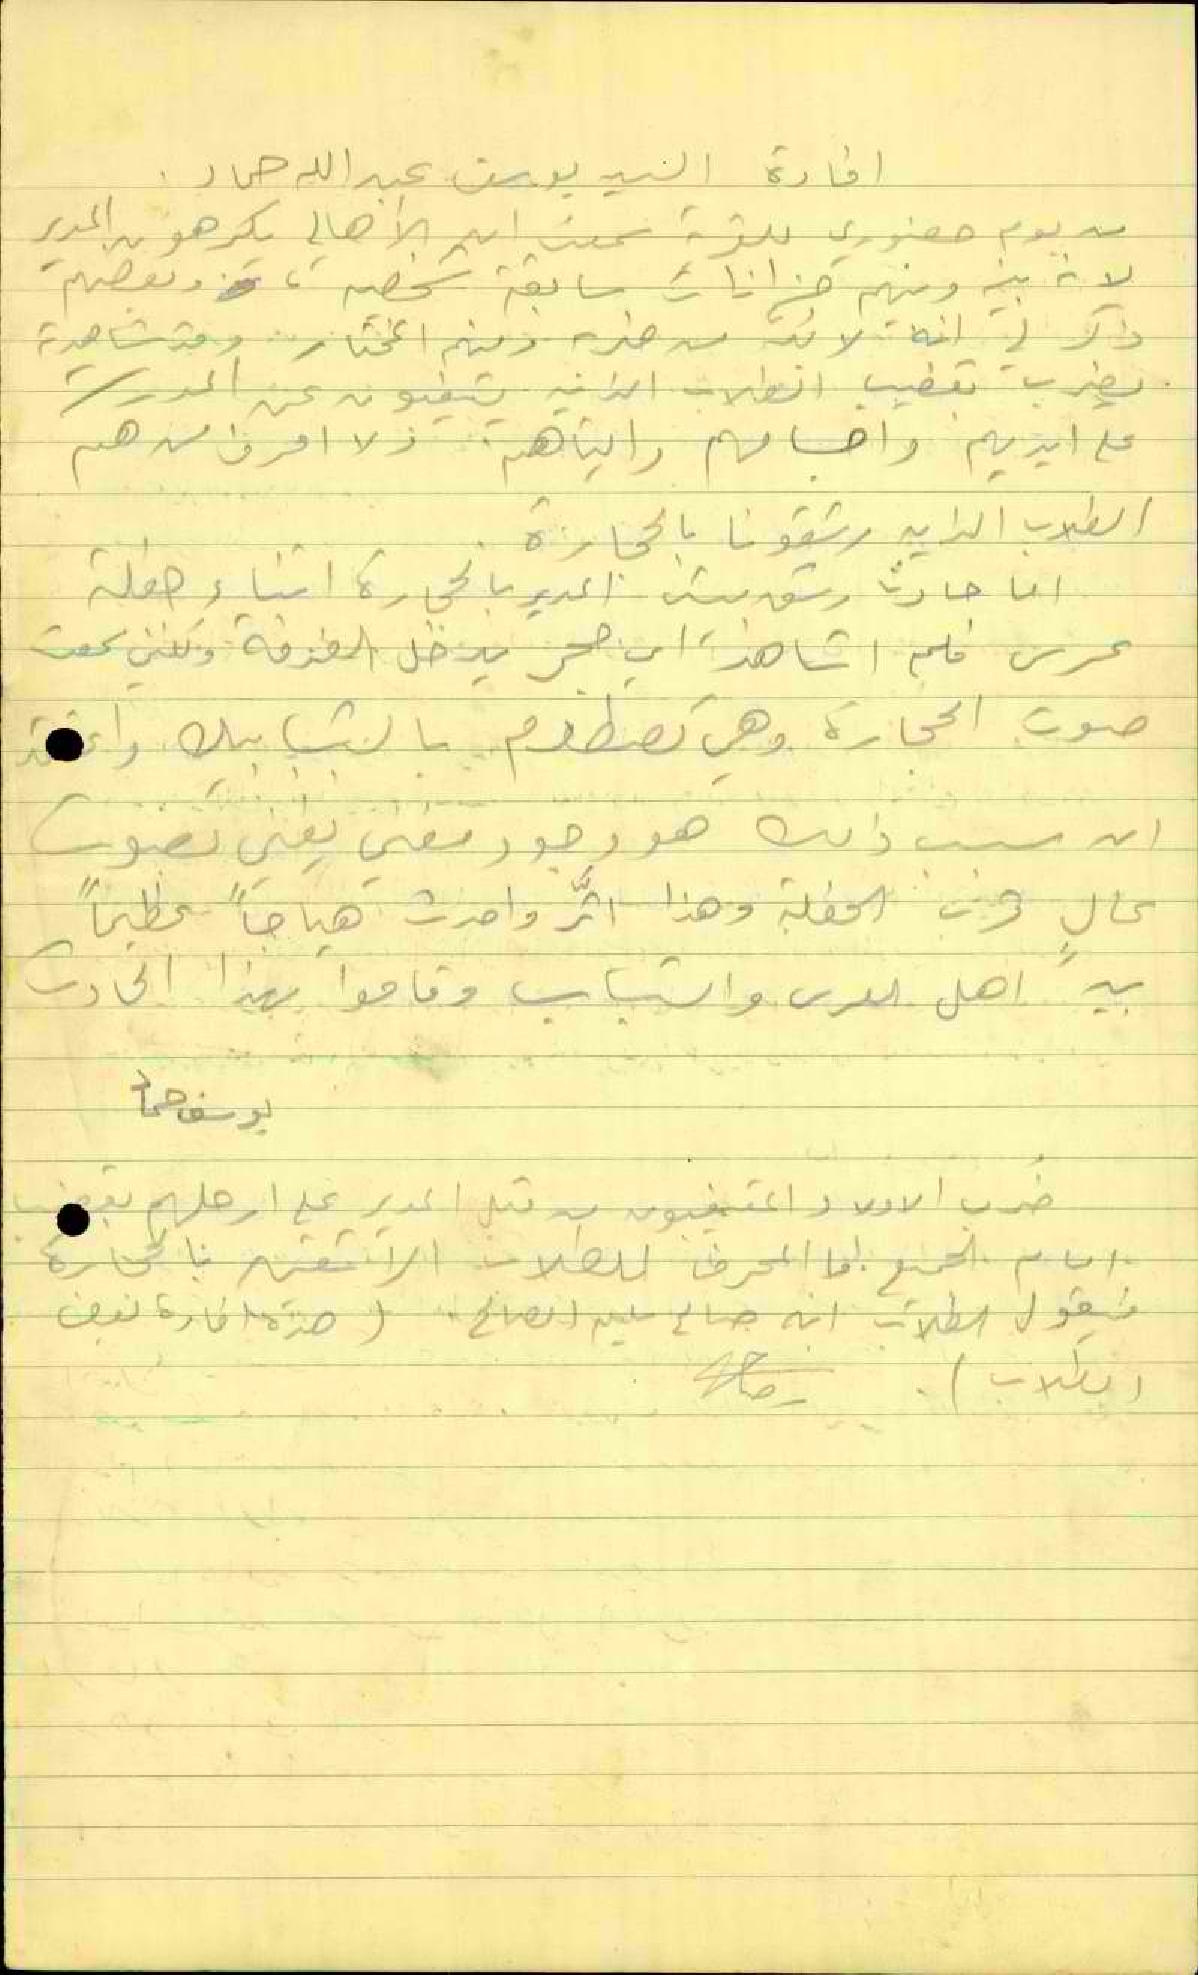 افادة السيد يوسف عبد الله حماد .
من يوم حضوري للقرية سمعت ان الأهالي يكرهون المدير
لانه بينه وبينهم حزازات سابقة شخصية ، وبعضهم
ذكر لي انه لا بد من ضربه ومنهم المختار وقد شاهدته
يضرب بقضيب الطلاب الذين يتغيبون عن المدرسة
على ايديهم واجسامهم ولا اعرف من هم
الطلاب الذين رشقونا بالحجارة
اما حادث رشق بيت المدير بالحجارة اثناء حفلة
عرس فلم اشاهد اي حجر يدخل الغرفة ولكني سمعت
صوت الحجارة وهي تصطدم بالشبابيك واعتقد
ان سبب ذلك هو وجود مغني يغني بصوت
عالٍ قرب الحفلة وهذا اثَّر واحدث هياجاً عظيماً
بين اهل العرس والشباب وقاموا بهذا الحادث
يوسف حماد
ضُرب الاولاد المتغيبون من قبل المدير على ارجلهم بقضيب
امام الجميع اما المحرض للطلاب بالحجارة
فيقول الطلاب انه صالح سليم الصالح . ( افادة بعض
الطلاب ) .